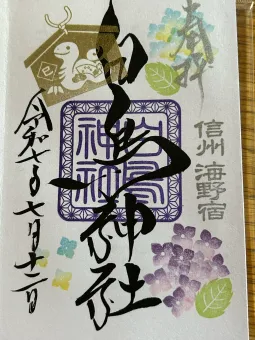 奉拝
信州 海野宿
白鳥神社
白鳥神社
巳
令和七年七月十二日